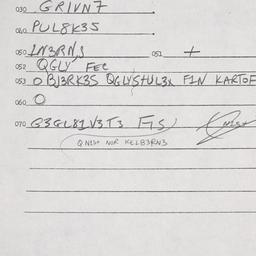 030 GRIVN7
040 PUL8K3S
050 1N3RNJ 051 +
052 QGLY FEC
053 O BJ3RK3S QGLYStUL3X F1N KARTOF
060 O
070 G3GL81V3T3 FGS
QN1St NOR KELB3RN3